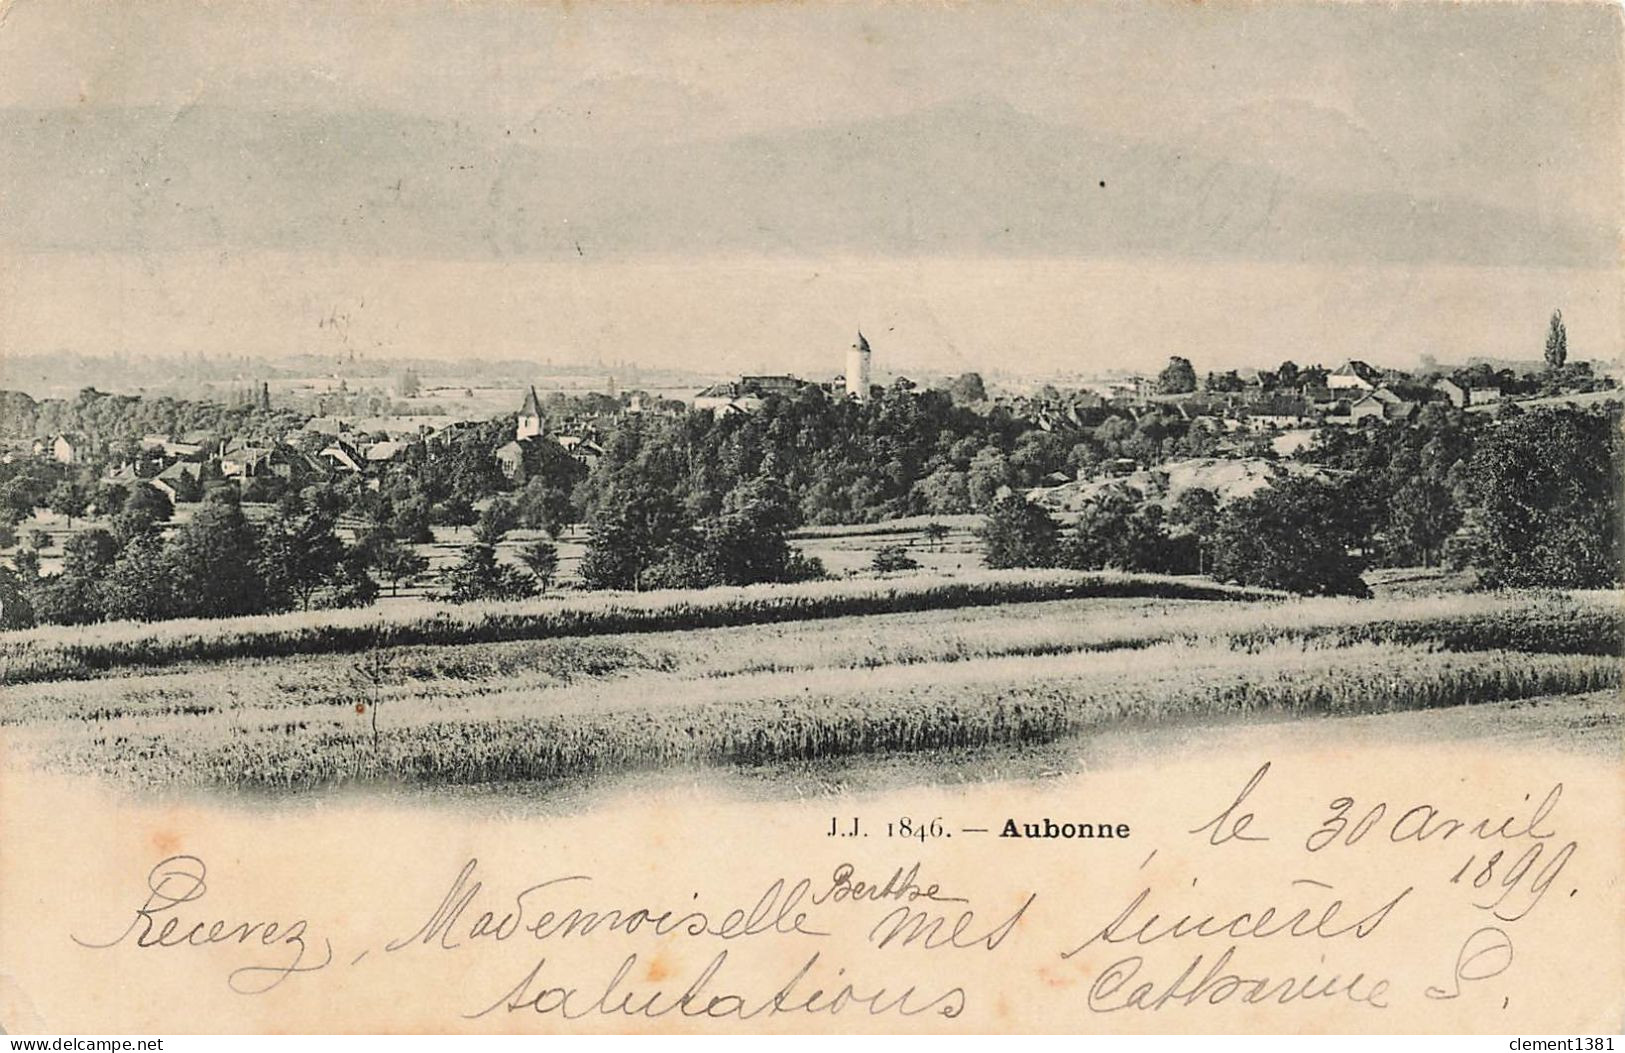 J.J. 1846. — Aubonne, le 30 avril
1899.
Berthe
Recevez, Mademoiselle mes sincères
salutations Catharine S.
delcampe.net
clement1381